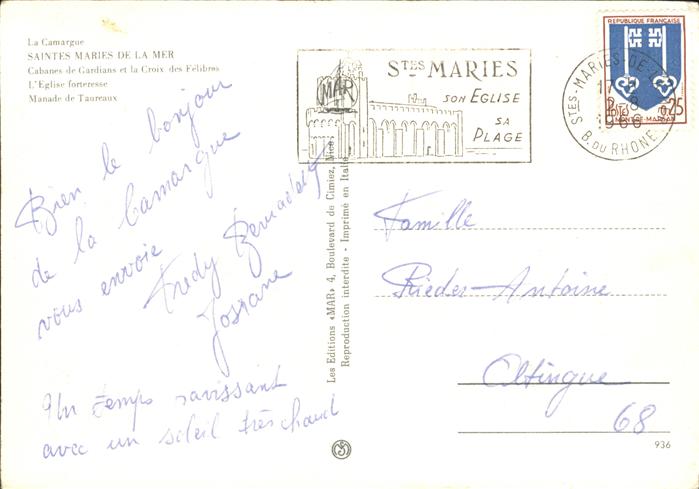 La Camargue
SAINTES MARIES DE LA MER
Cabanes de Gardians et la Croix des Félibres
L'Eglise forteresse
Manade de Taureaux
Bien le bonjour
de la Camargue
vous envoie
Fredy Bernadette
Josiane
Un temps ravissant
avec un soleil très chaud
Les Editions «MAR» 4, Boulevard de Cimiez, Nice
Reproduction interdite - Imprimé en Italie
MAR
STES MARIES
SON EGLISE
SA
PLAGE
STES-MARIES-DE-L
17
-8
1966
B. DU RHONE
REPUBLIQUE FRANÇAISE
POSTES 0,25
MONT-DE-MARSAN
Famille
Rieder-Antoine
Oltingue
68
936